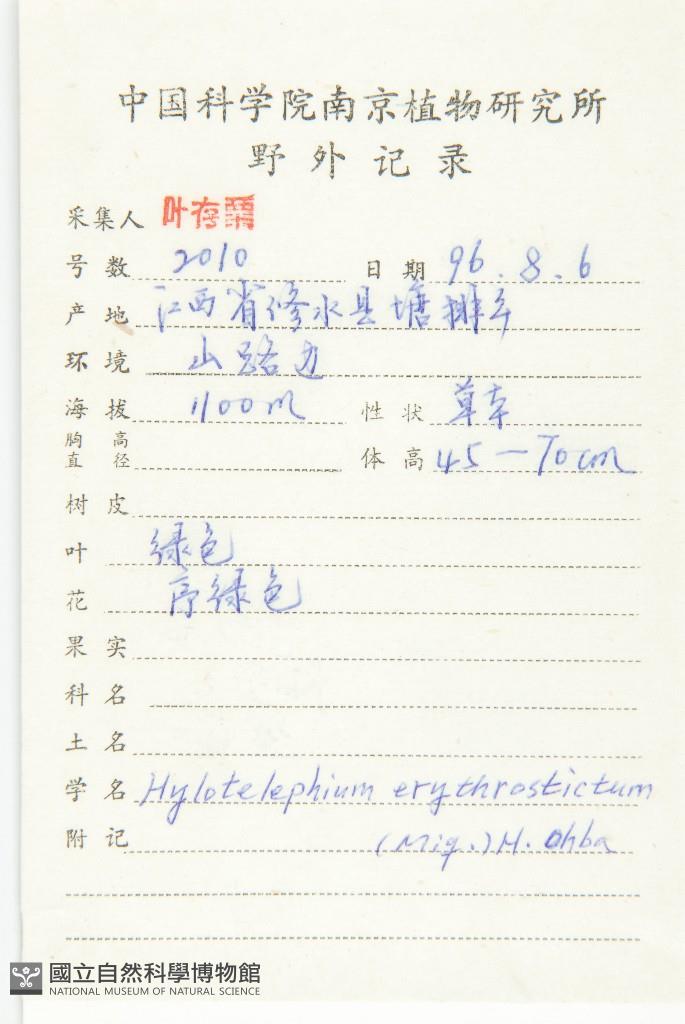 中国科学院南京植物研究所
野外记录
采集人 叶存粟
号数 2010 日期 96.8.6
产地 江西省修水县塘排
环境 山路边
海拔 1100m 性状 草本
胸高直径 体高 45—70cm
树皮
叶 绿色
花 序绿色
果实
科名
土名
学名 Hylotelephium erythrostictum
附记 (Miq.) H. Ohba
國立自然科學博物館
NATIONAL MUSEUM OF NATURAL SCIENCE